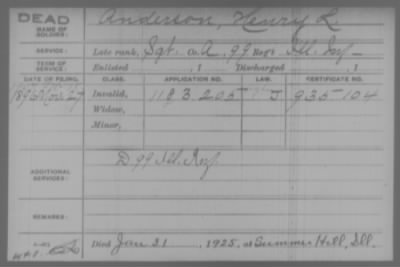 DEAD
NAME OF SOLDIER: Anderson, Henry L.
SERVICE: Late rank, Sgt. Co. A, 99 Reg't Ill. Inf.
TERM OF SERVICE: Enlisted , 1 Discharged , 1
DATE OF FILING. CLASS. APPLICATION NO. LAW. CERTIFICATE NO.
Nov. 27 Invalid, 1183.205 J 935-104
Widow,
Minor,
ADDITIONAL SERVICES: D 99 Ill. Inf.
REMARKS:
Died Jan 21, 1925, at Summer Hill, Ill.